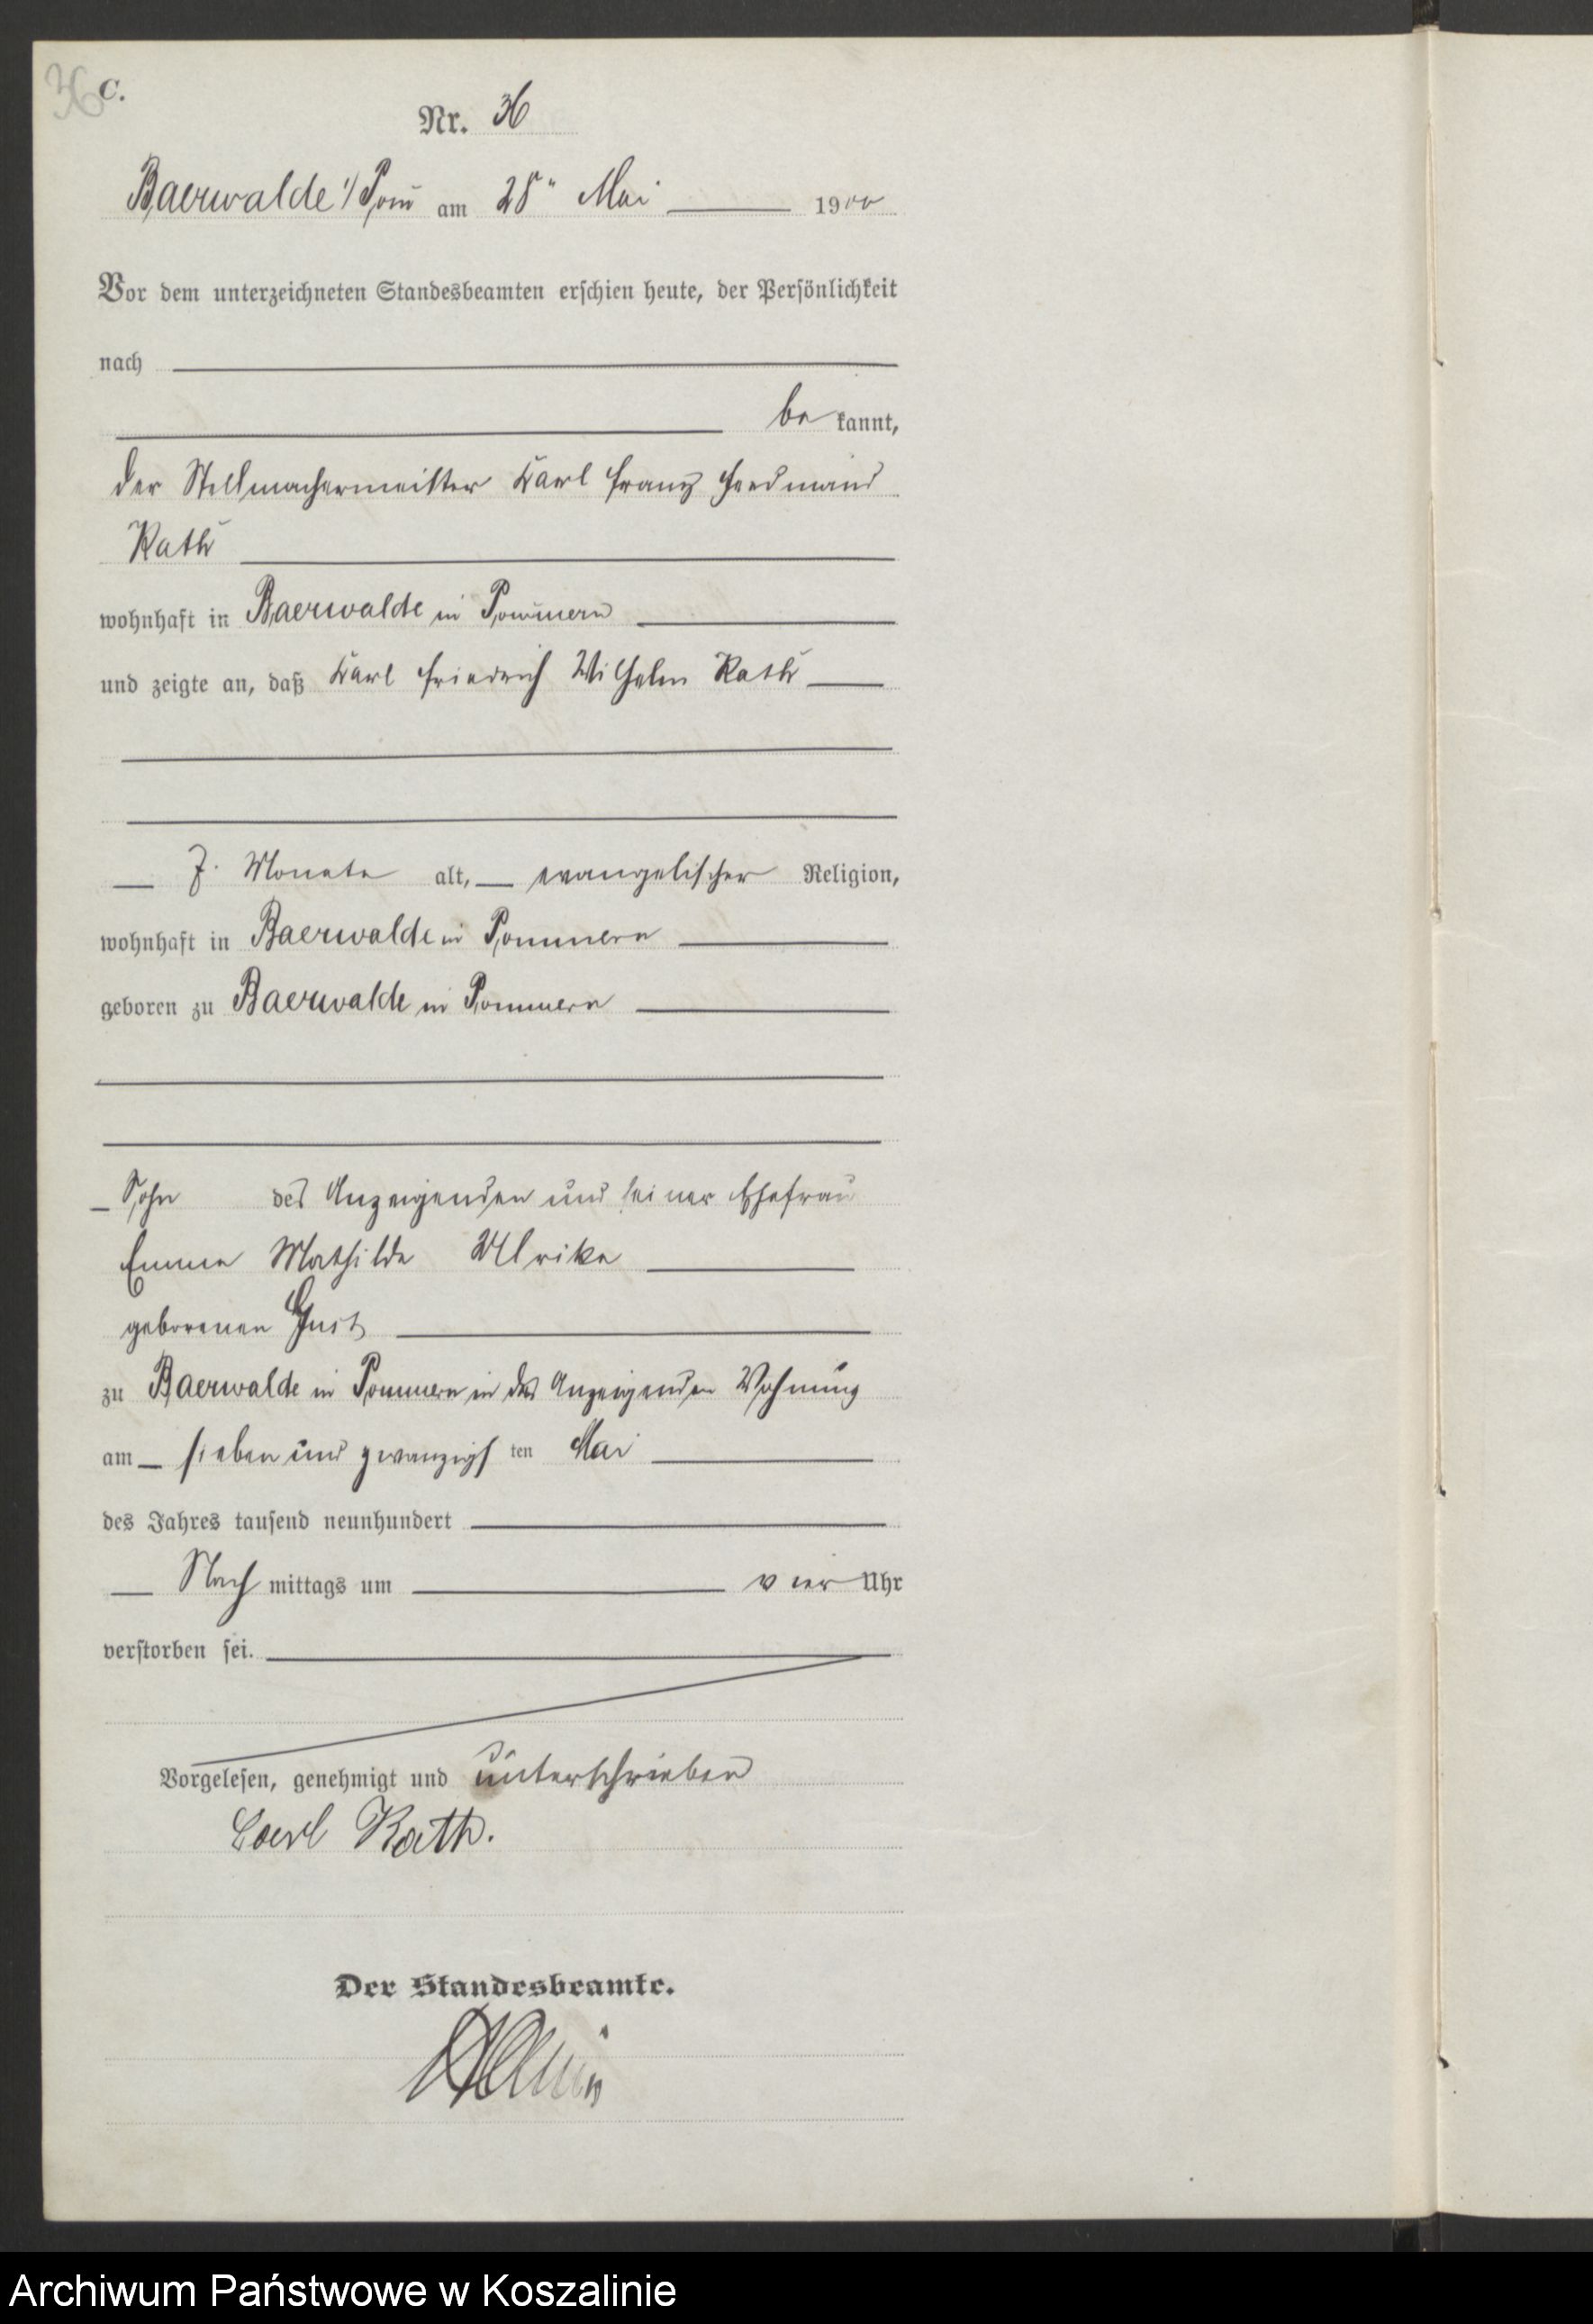 36
C.
Nr. 36
Baerwalde i/Pom am 28ten Mai 1900
Vor dem unterzeichneten Standesbeamten erschien heute, der Persönlichkeit
nach
be kannt,
der Stellmachermeister Karl Franz Ferdinand
Rath
wohnhaft in Baerwalde in Pommern
und zeigte an, daß Karl Friedrich Wilhelm Rath
7 Monate alt, evangelischer Religion,
wohnhaft in Baerwalde in Pommern
geboren zu Baerwalde in Pommern
Sohn des Anzeigenden und seiner Ehefrau
Emma Mathilde Ulrike
geborenen Gust
zu Baerwalde in Pommern in des Anzeigenden Wohnung
am sieben und zwanzigsten Mai
des Jahres tausend neunhundert
Nach mittags um vier Uhr
verstorben sei.
Vorgelesen, genehmigt und unterschrieben
Carl Rath.
Der Standesbeamte.
Archiwum Państwowe w Koszalinie